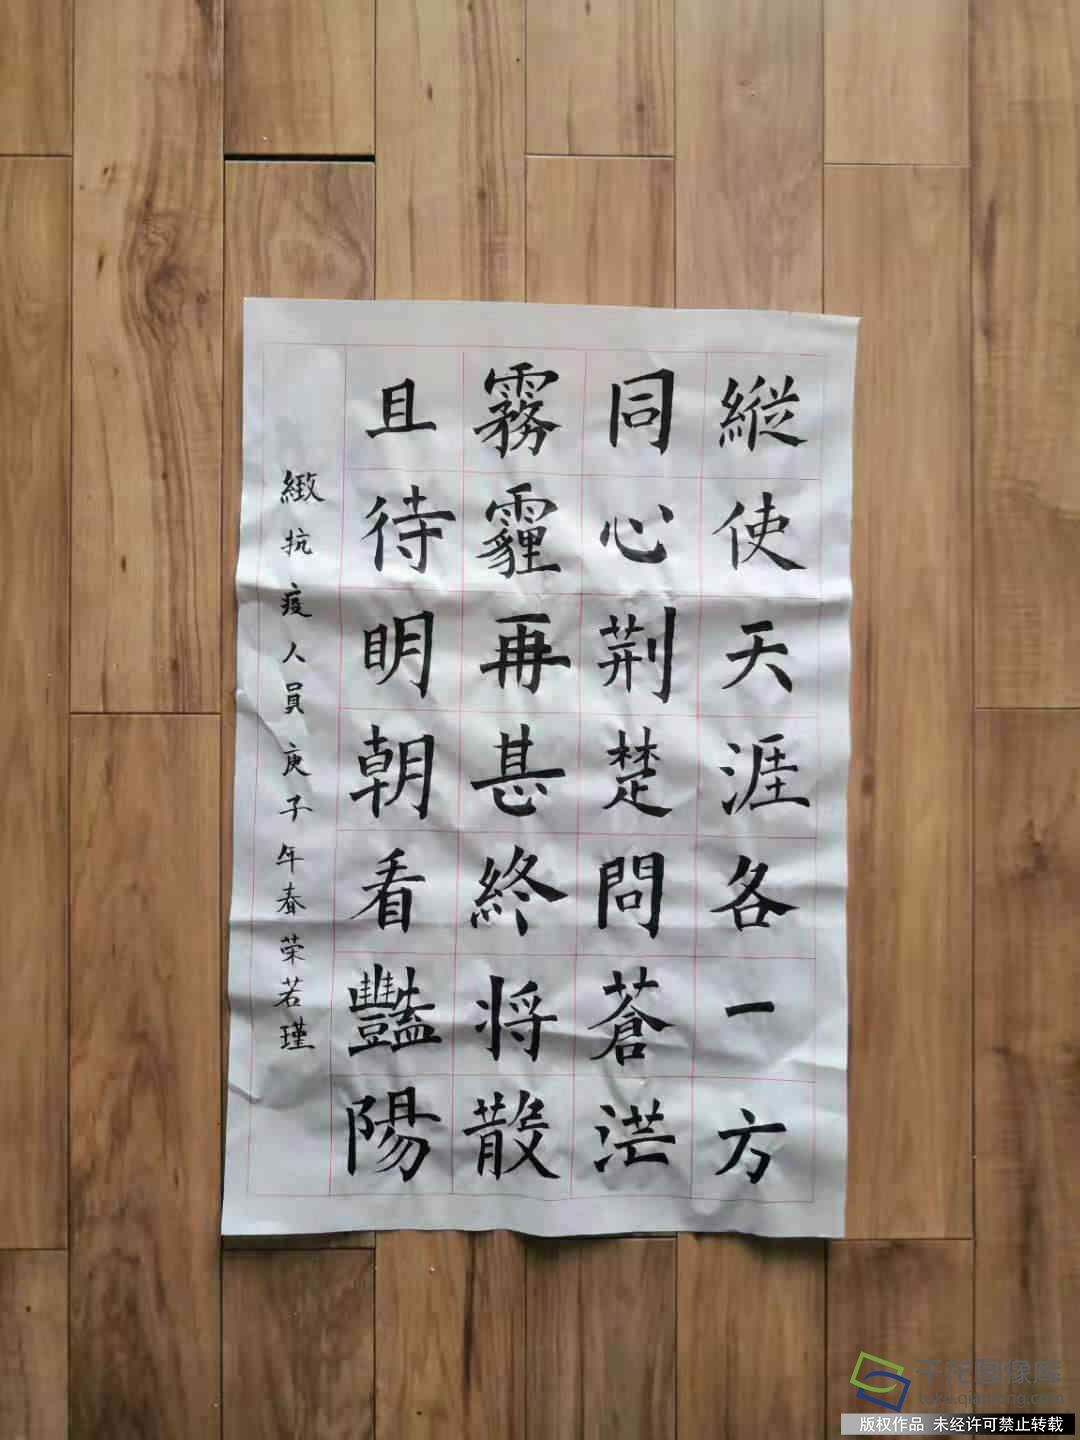 縱使天涯各一方
同心荆楚問蒼茫
霧霾再甚終将散
且待明朝看豔陽
緻抗疫人員庚子年春荣若瑾
千龙图像库
tuku.qianlong.com
版权作品 未经许可禁止转载